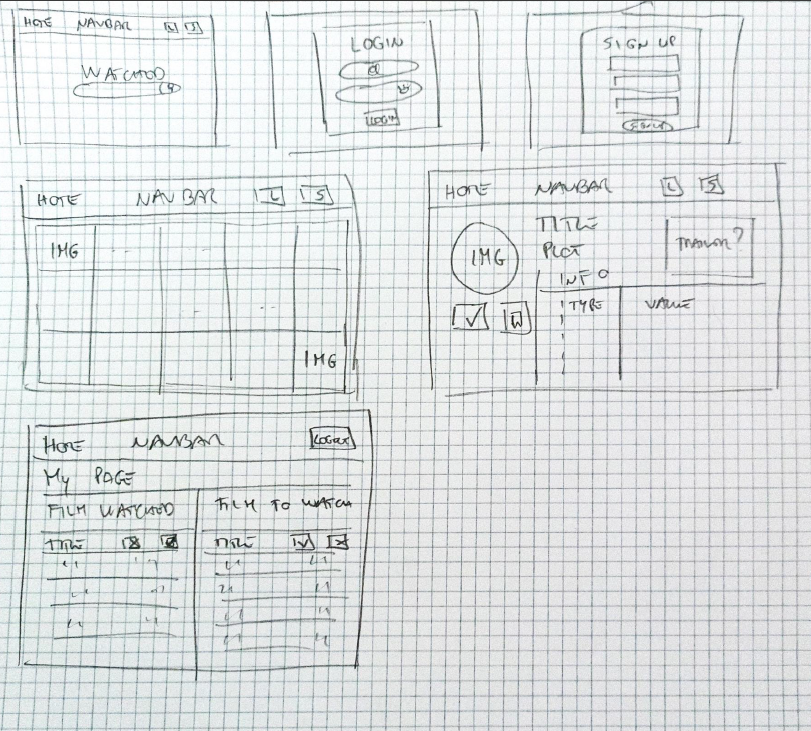 HOME NAVBAR L S
WATCHED
LOGIN
@
LOGIN
SIGN UP
HOME NAVBAR L S
IMG
IMG
HOME NAVBAR L S
IMG
TITLE
PLOT
INFO
TRAILER?
TYPE VALUE
HOME NAVBAR LOGOUT
My PAGE
FILM WATCHED FILM TO WATCH
TITLE TITLE